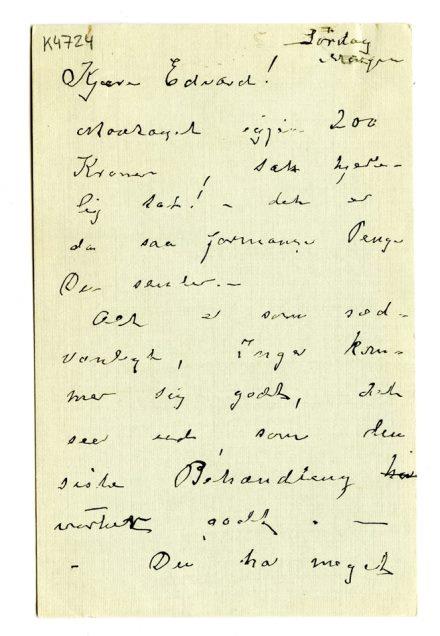 K4724
Lördag
Morgen
Kjære Edvard!
Modtaget igjen 200
Kroner, tak hjerte-
lig tak! – det er
da saa formange Penge
Du sender. –
Alt er som sed-
vanligt, Inger kom-
mer sig godt, det
seer ud, som den
siste Behandling
virket godt. –
– Du har meget